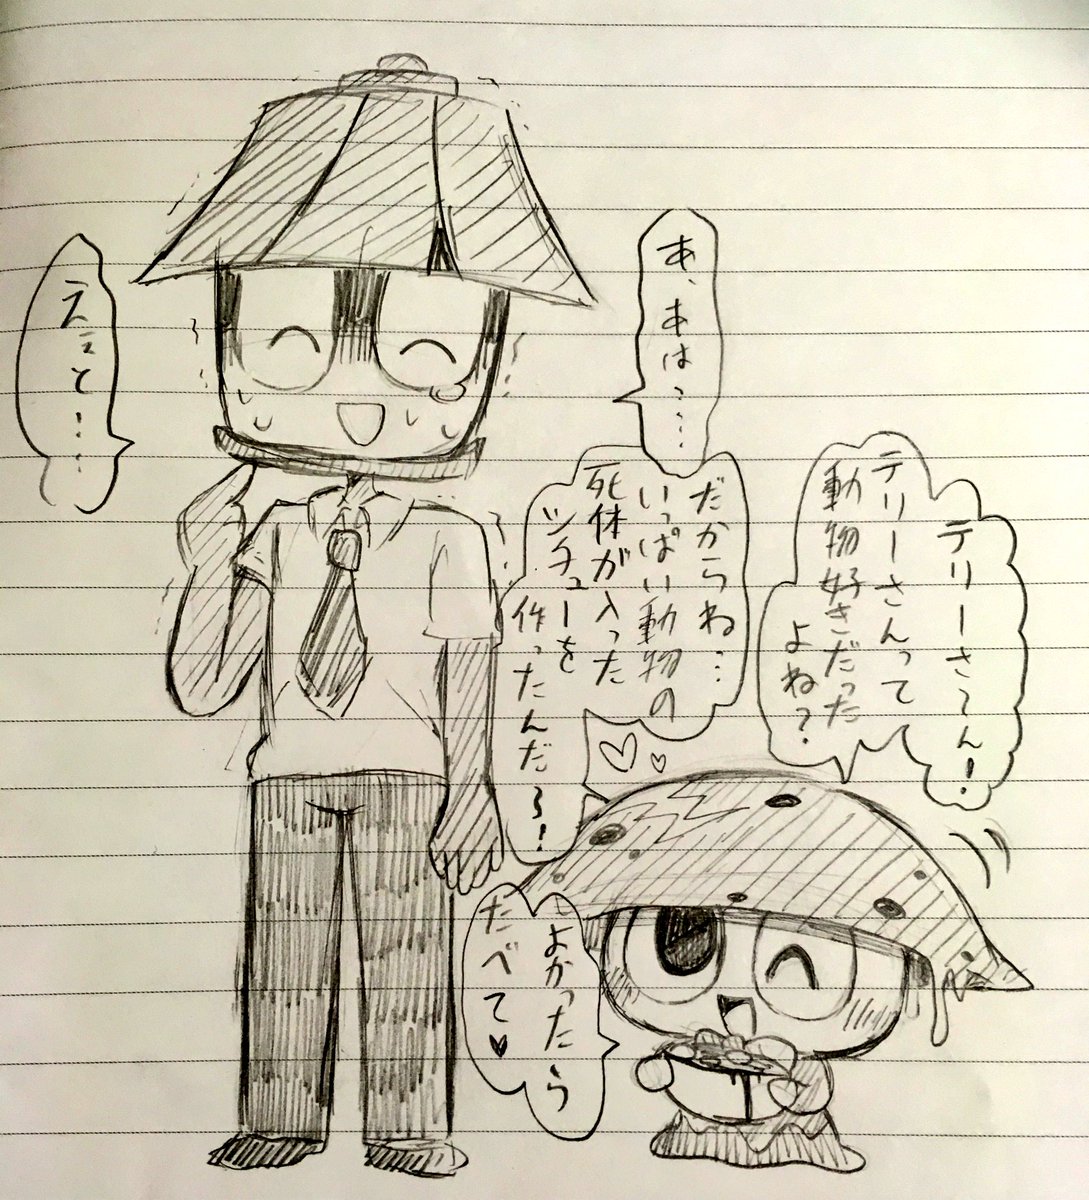 テリーさーん!
テリーさんって
動物好きだった
よね?
だからね…
いっぱい動物の
死体が入った
シチューを
作ったんだ〜!
よかったら
たべて♥
あ、あは……
ええと…